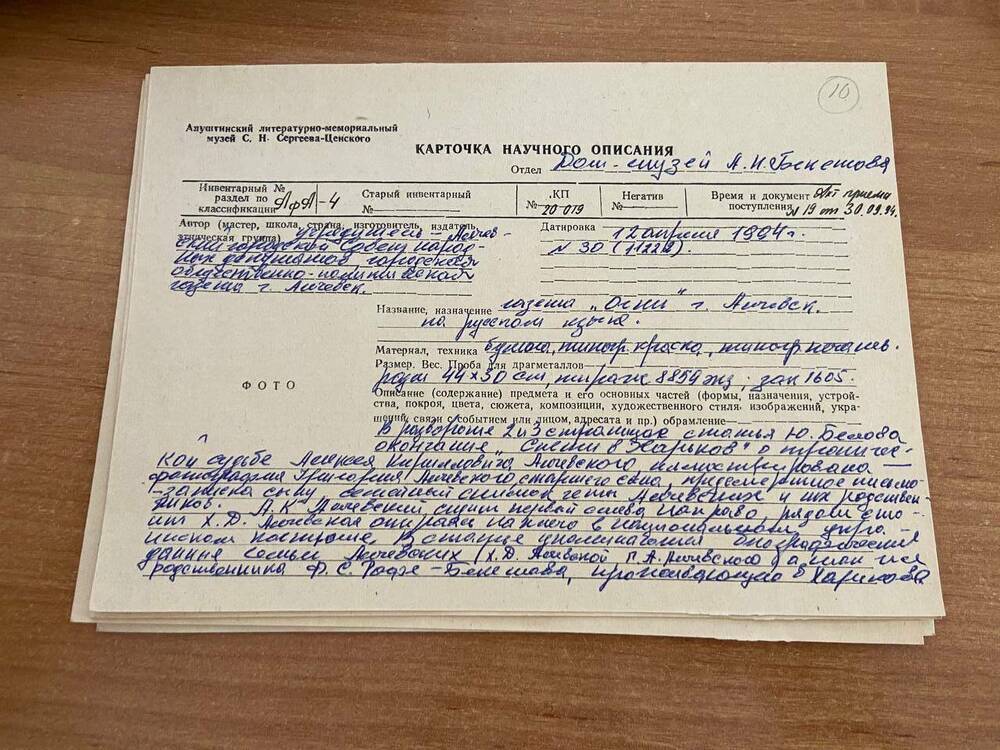 10
Алуштинский литературно-мемориальный
музей С. Н. Сергеева-Ценского
КАРТОЧКА НАУЧНОГО ОПИСАНИЯ
Отдел Дом-музей А.Н. Бекетова
Инвентарный № раздел по классификации АФА-4
Старый инвентарный №
КП № 20-019
Негатив №
Время и документ поступления Акт приема N 19 от 30.09.94.
Автор (мастер, школа, страна, изготовитель, издатель,
этническая группа) учредитель – Алчев-
ский городской Совет народ-
ных депутатов городская
общественно-политическая
газета г. Алчевск.
Датировка 12 апреля 1994 г.
N 30 (11222).
Название, назначение газета „Огни" г. Алчевск.
на русском языке.
Материал, техника бумага, типогр. краска, типогр. печать.
Размер. Вес. Проба для драгметаллов
разм 44×30 см, тираж 8854 экз, зак 1605.
ФОТО
Описание (содержание) предмета и его основных частей (формы, назначения, устрой-
ства, покроя, цвета, сюжета, композиции, художественного стиля изображений, укра-
шений, связи с событием или лицом, адресата и пр.) обрамление
В развороте 2 и 3 страницах статья Ю. Белова
окончание „ в Харьков" о трагичес-
кой судьбе Алексея Кирилловича Алчевского иллюстрирована –
фотография Григория Алчевского старшего сына, предсмертное письмо-
записка сыну, семейный снимок четы Алчевских и их родствен-
ников. А.К. Алчевский сидит первой слева направо, рядом сто-
ит Х.Д. Алчевская опираясь на него в национальном укра-
инском костюме. В статье упоминаются биографические
данные семьи Алчевских (Х.Д. Алчевской Г.А. Алчевского
родственника Ф.С. Рофе-Бекетова, проживающего в Харькове